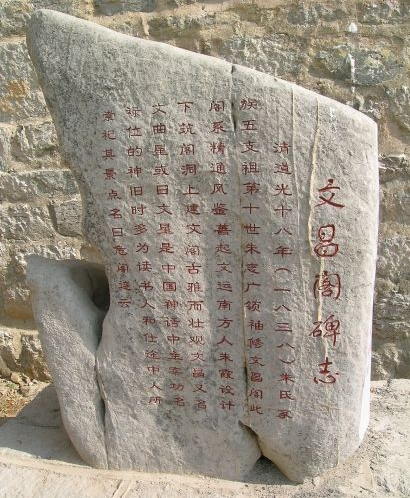 文昌阁碑志
清道光十八年(一八三八)朱氏家
族五支祖第十世朱志广领袖修文昌阁此
阁系精通风鉴善起文运南方人朱霞设计
下筑阁洞上建文阁古雅而壮观文昌又名
文曲星或曰文星是中国神话中主宰功名
禄位的神旧时多为读书人和仕途中人所
崇祀其景点名曰危阁连云